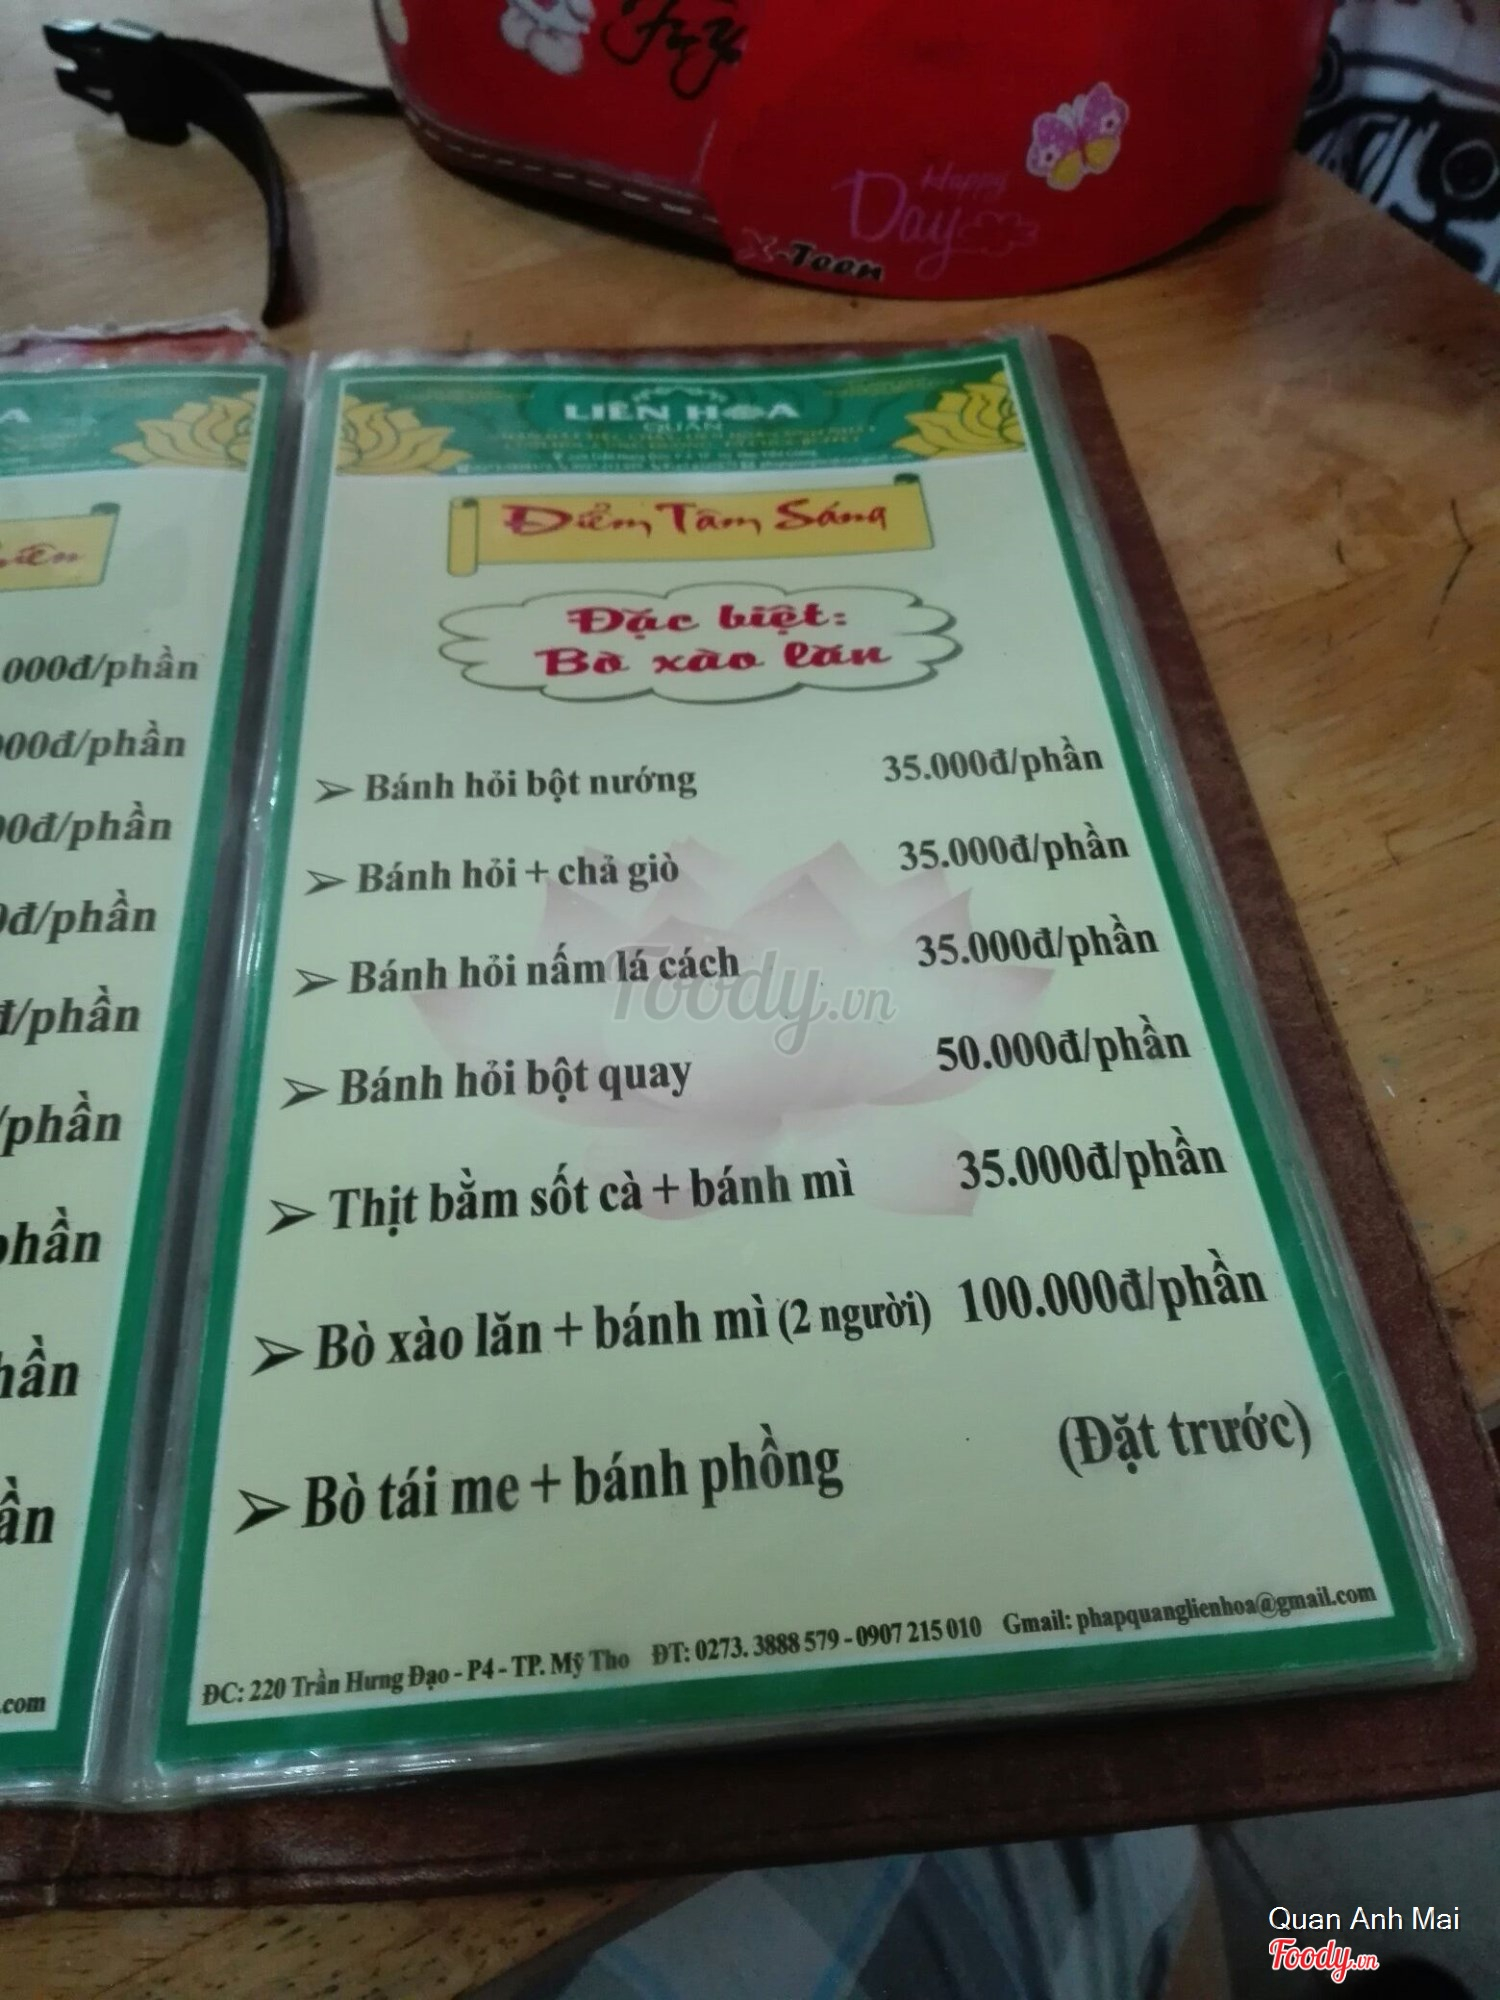 Happy
Day
X-Teen
LIÊN HOA
QUÁN
Điểm Tâm Sáng
Đặc biệt:
Bò xào lăn
Bánh hỏi bột nướng 35.000đ/phần
Bánh hỏi + chả giò 35.000đ/phần
Bánh hỏi nấm lá cách 35.000đ/phần
Bánh hỏi bột quay 50.000đ/phần
Thịt bằm sốt cà + bánh mì 35.000đ/phần
Bò xào lăn + bánh mì (2 người) 100.000đ/phần
Bò tái me + bánh phồng (Đặt trước)
ĐC: 220 Trần Hưng Đạo - P4 - TP. Mỹ Tho ĐT: 0273. 3888 579 - 0907 215 010 Gmail: phapquanglienhoa@gmail.com
000đ/phần
00đ/phần
0đ/phần
đ/phần
/phần
phần
.com
Foody.vn
Quan Anh Mai
Foody.vn